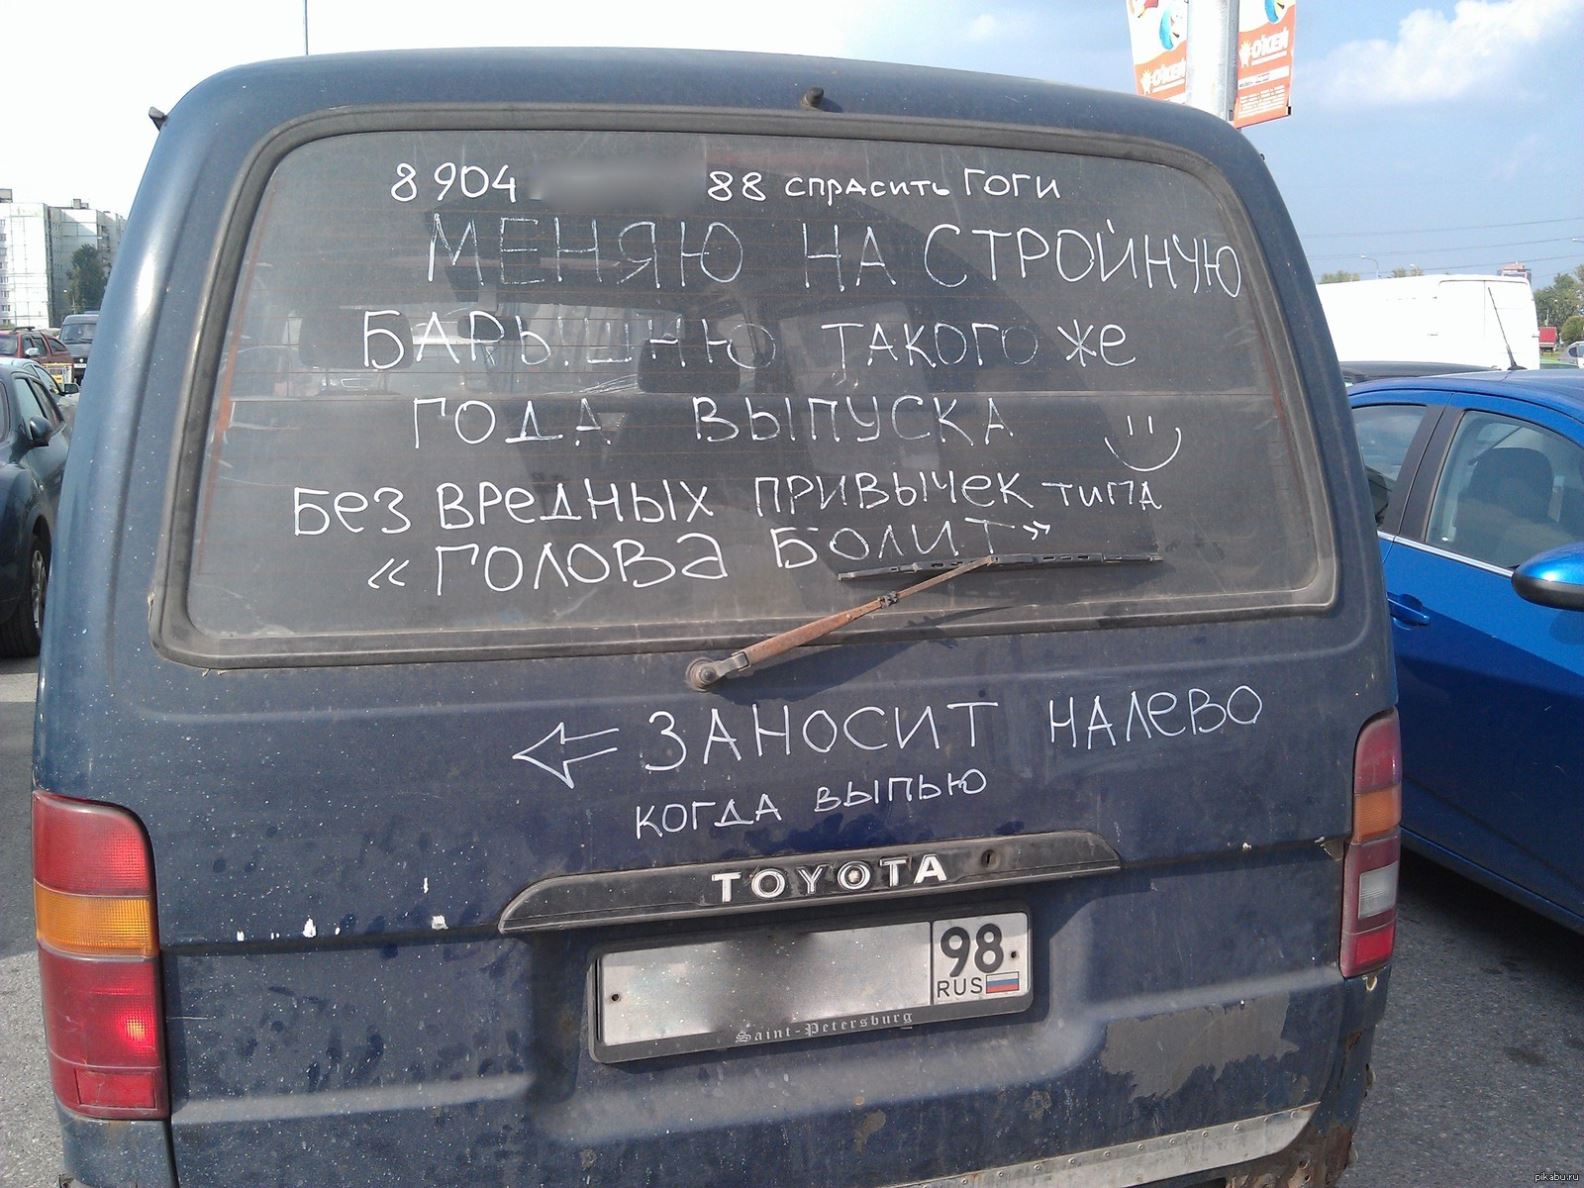 О'КЕЙ
О'КЕЙ
8904 88 спрасить Гоги
МЕНЯЮ НА СТРОЙНУЮ
БАРЫШНЮ ТАКОГО же
ГОДА ВЫПУСКА
Без вредных привычек типа
«ГОЛОВА БОЛИТ»
ЗАНОСИТ НАЛЕВО
когда выпью
TOYOTA
98
RUS
Saint-Petersburg
pikabu.ru